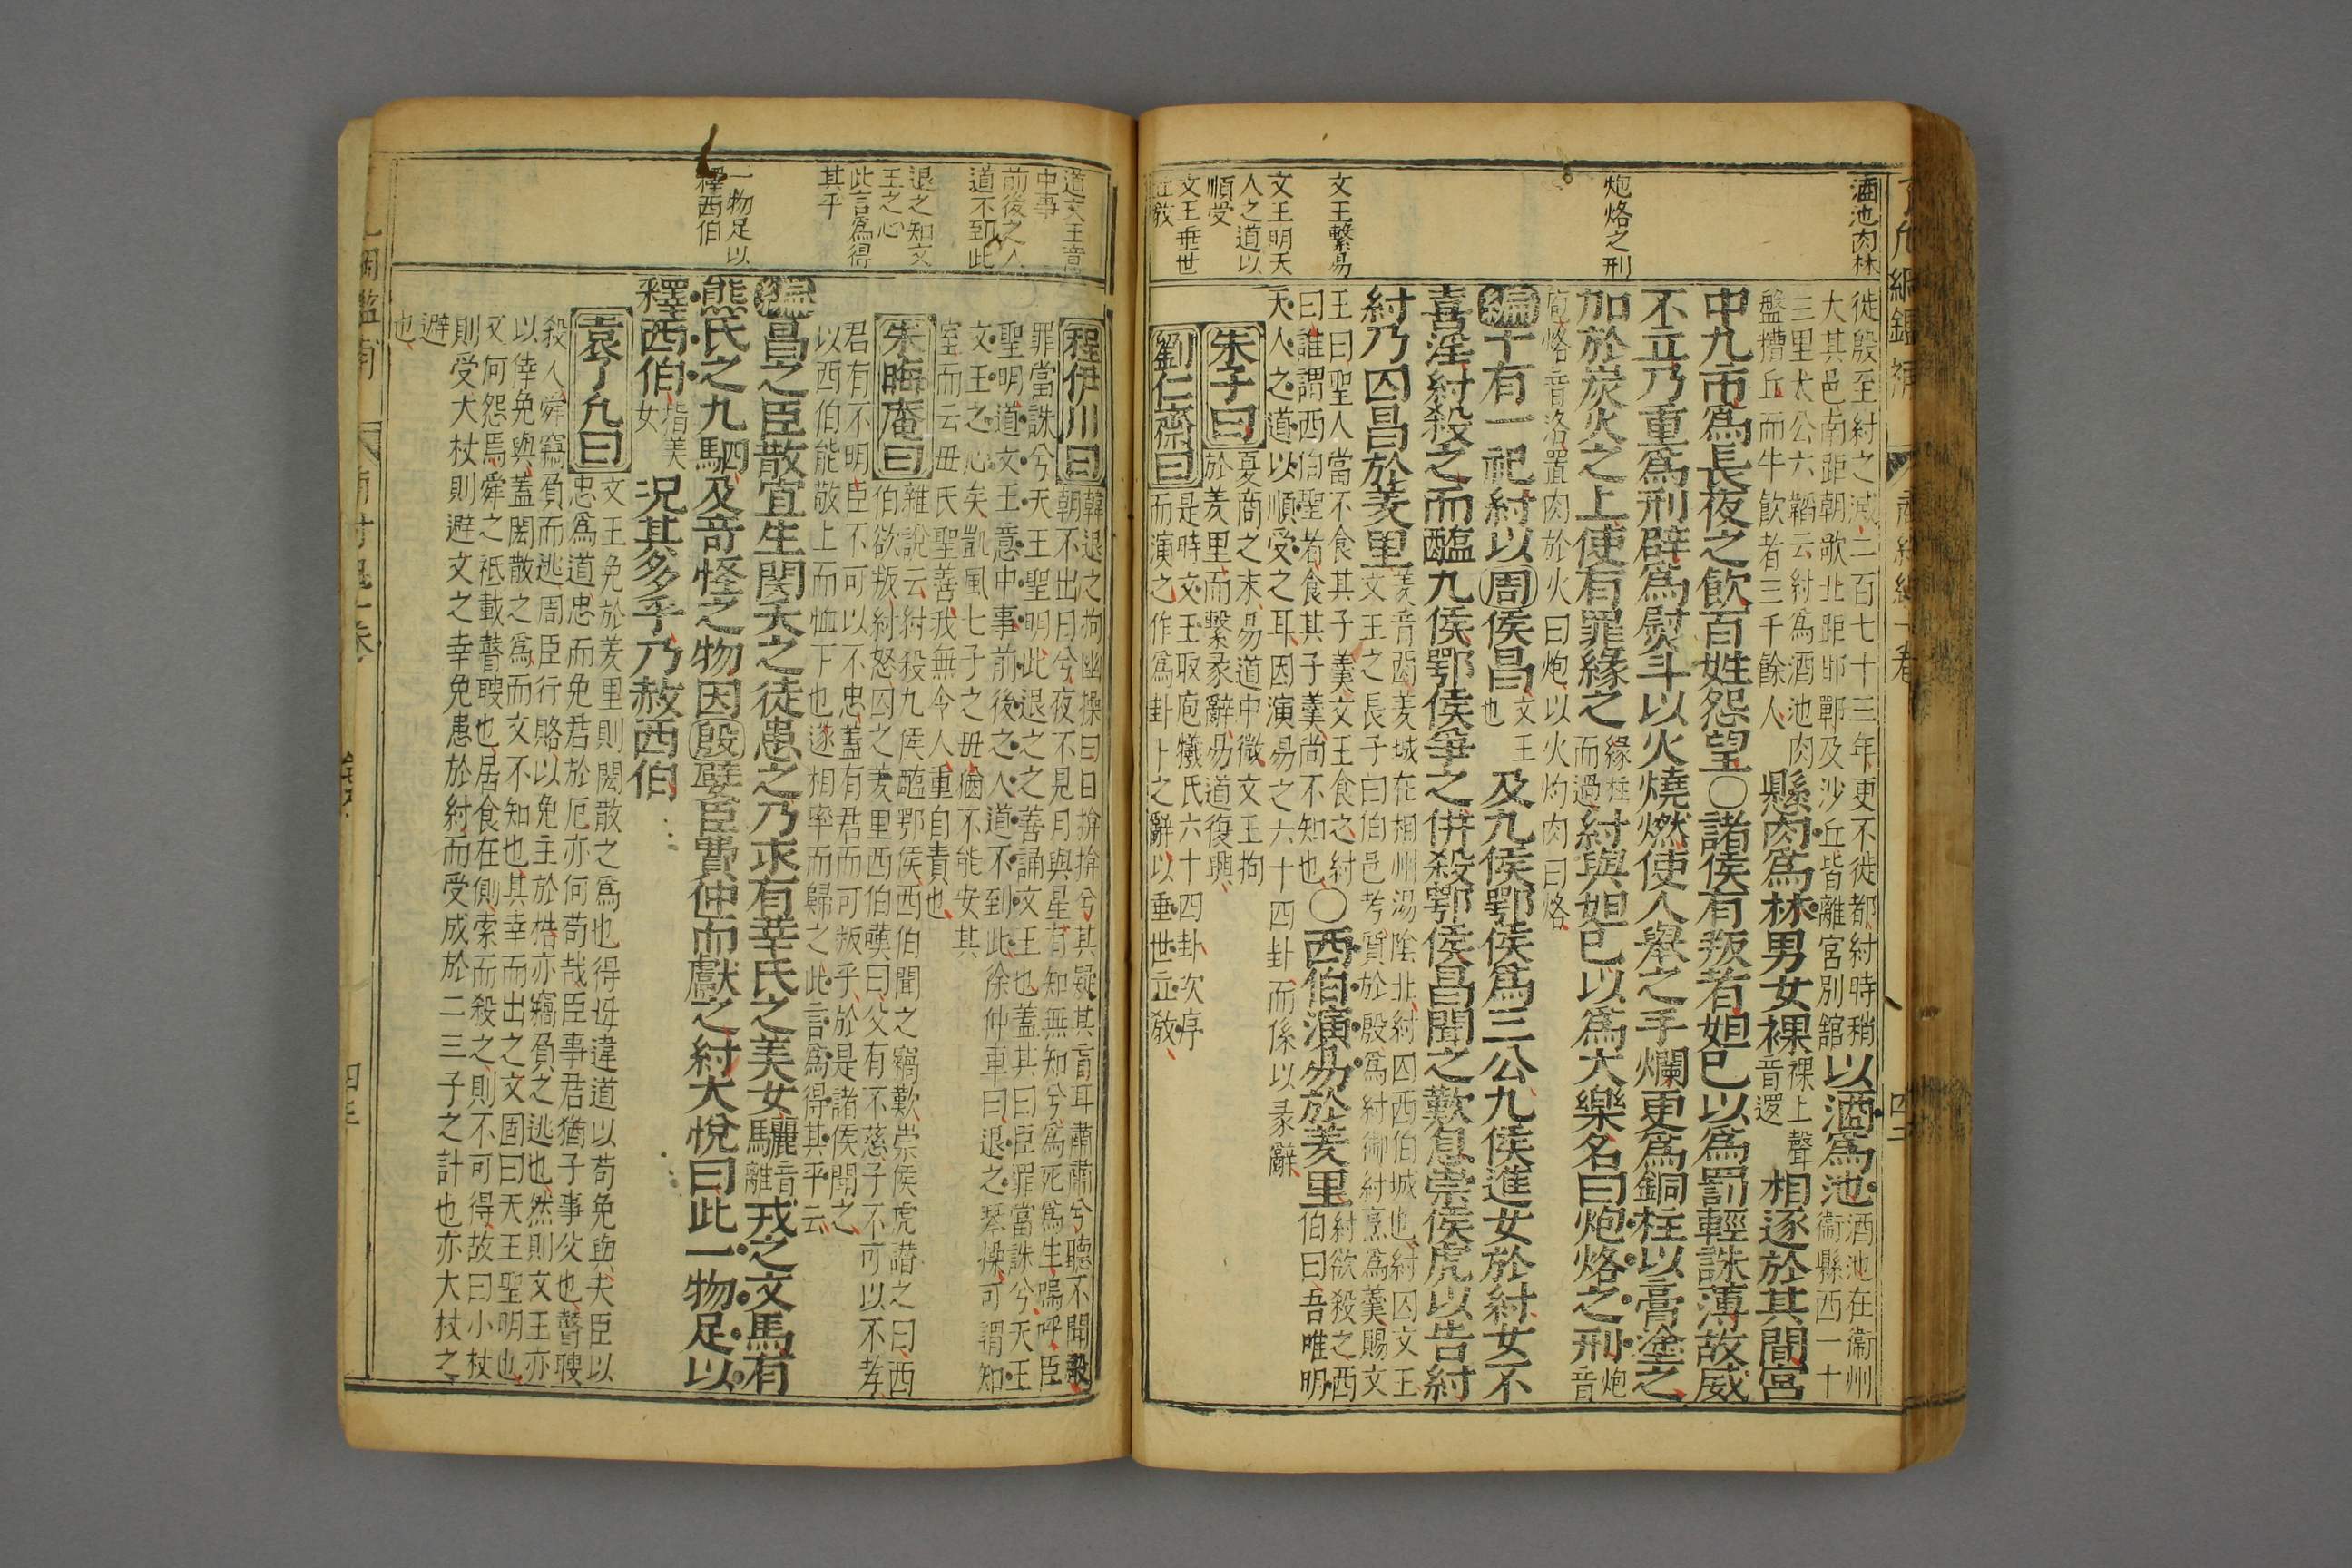 酒池肉林
炮烙之刑
文王繫易
文王明天
人之道以
順受
文王垂世
立教
徙殷至紂之滅二百七十三年更不徙都紂時稍
大其邑南距朝歌北距邯鄲及沙丘皆離宮別館
以酒爲池
酒池在衞州
衞縣西一十
三里太公六韜云紂爲酒池肉
盤糟丘而牛飲者三千餘人
懸肉爲林男女裸
裸上聲
音逻
相逐於其間宮
中九市爲長夜之飲百姓怨望〇諸侯有叛者妲己以爲罰輕誅薄故威
不立乃重爲刑辟爲熨斗以火燒燃使人舉之手爛更爲銅柱以膏塗之
加於炭火之上使有罪緣之
緣柱
而過
紂與妲己以爲大樂名曰炮烙之刑
炮
音
庖烙音洛置肉於火曰炮以火灼肉曰烙
編十有一祀紂以周侯昌
文王
也
及九侯鄂侯爲三公九侯進女於紂女不
喜淫紂殺之而醢九侯鄂侯爭之併殺鄂侯昌聞之歎息崇侯虎以告紂
紂乃囚昌於羑里
羑音酉羑城在相州湯陰北紂囚西伯城也紂囚文王
文王之長子曰伯邑考質於殷爲紂御紂烹爲羹賜文
王曰聖人當不食其子羹文王食之紂
曰誰謂西伯聖者食其子羹尚不知也
〇西伯演易於羑里
紂欲殺之西
伯曰吾唯明
天人之道以順受之耳因演易之六十四卦而係以彖辭
朱子曰
憂商之末易道中微文王拘
於羑里而繫彖辭易道復興
劉仁齋曰
是時文王取庖犧氏六十四卦次序
而演之作爲卦卜之辭以垂世立教
道文王意
中事
前後之人
道不到此
退之知文
王之心
此言爲得
其平
一物足以
釋西伯
程伊川曰
韓退之拘幽操曰目揜揜兮其疑其盲耳肅肅兮聽不聞殺
朝不出日兮夜不見月與星有知無知兮爲死爲生嗚呼臣
罪當誅兮天王聖明此退之之善誦文王也蓋其曰臣罪當誅兮天王
聖明道文王意中事前後之人道不到此徐仲車曰退之琴操可謂知
文王之心矣凱風七子之毋猶不能安其
室而云毋氏聖善我無令人重自責也
朱晦庵曰
雜說云紂殺九侯醢鄂侯西伯聞之竊歎崇侯虎譖之曰西
伯欲叛紂怒囚之羑里西伯嘆曰父有不慈子不可以不孝
君有不明臣不可以不忠蓋有君而可叛乎於是諸侯聞之
以西伯能敬上而恤下也遂相率而歸之此言爲得其平云
編昌之臣散宜生閎夭之徒患之乃求有莘氏之美女驪
音
離
戎之文馬有
熊氏之九駟及奇怪之物因殷嬖臣費仲而獻之紂大悅曰此一物足以
釋西伯
指美
女
況其多乎乃赦西伯
袁了凡曰
文王免於羑里則閎散之爲也得毋違道以苟免與夫臣以
忠爲道忠而免君於厄亦何苟哉臣事君猶子事父也瞽瞍
殺人舜竊負而逃周臣行賂以免主於梏亦竊負之逃也然則文王亦
以倖免與蓋閎散之爲而文不知也其幸而出之文固曰天王聖明也
又何怨焉舜之祇載瞽瞍也居食在側索而殺之則不可得故曰小杖
則受大杖則避文之幸免患於紂而受成於二三子之計也亦大杖之
避
也